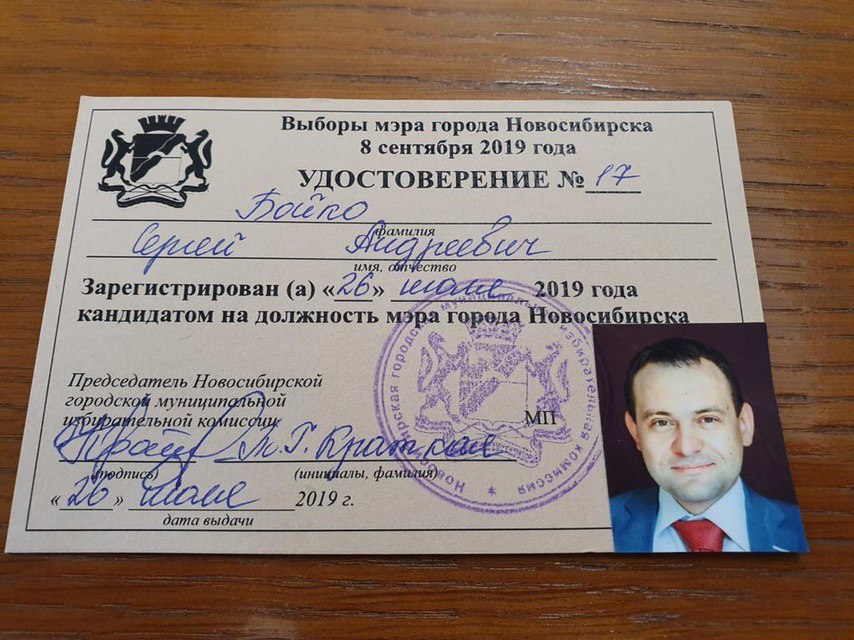 Выборы мэра города Новосибирска
8 сентября 2019 года
УДОСТОВЕРЕНИЕ № 17
Бойко
фамилия
Сергей Андреевич
имя, отчество
Зарегистрирован (а) «26» июля 2019 года
кандидатом на должность мэра города Новосибирска
Председатель Новосибирской
городской муниципальной
избирательной комиссии
МП
Т.Г. Краткая
(подпись) (инициалы, фамилия)
«26» июля 2019 г.
дата выдачи
Новосибирская городская муниципальная избирательная комиссия